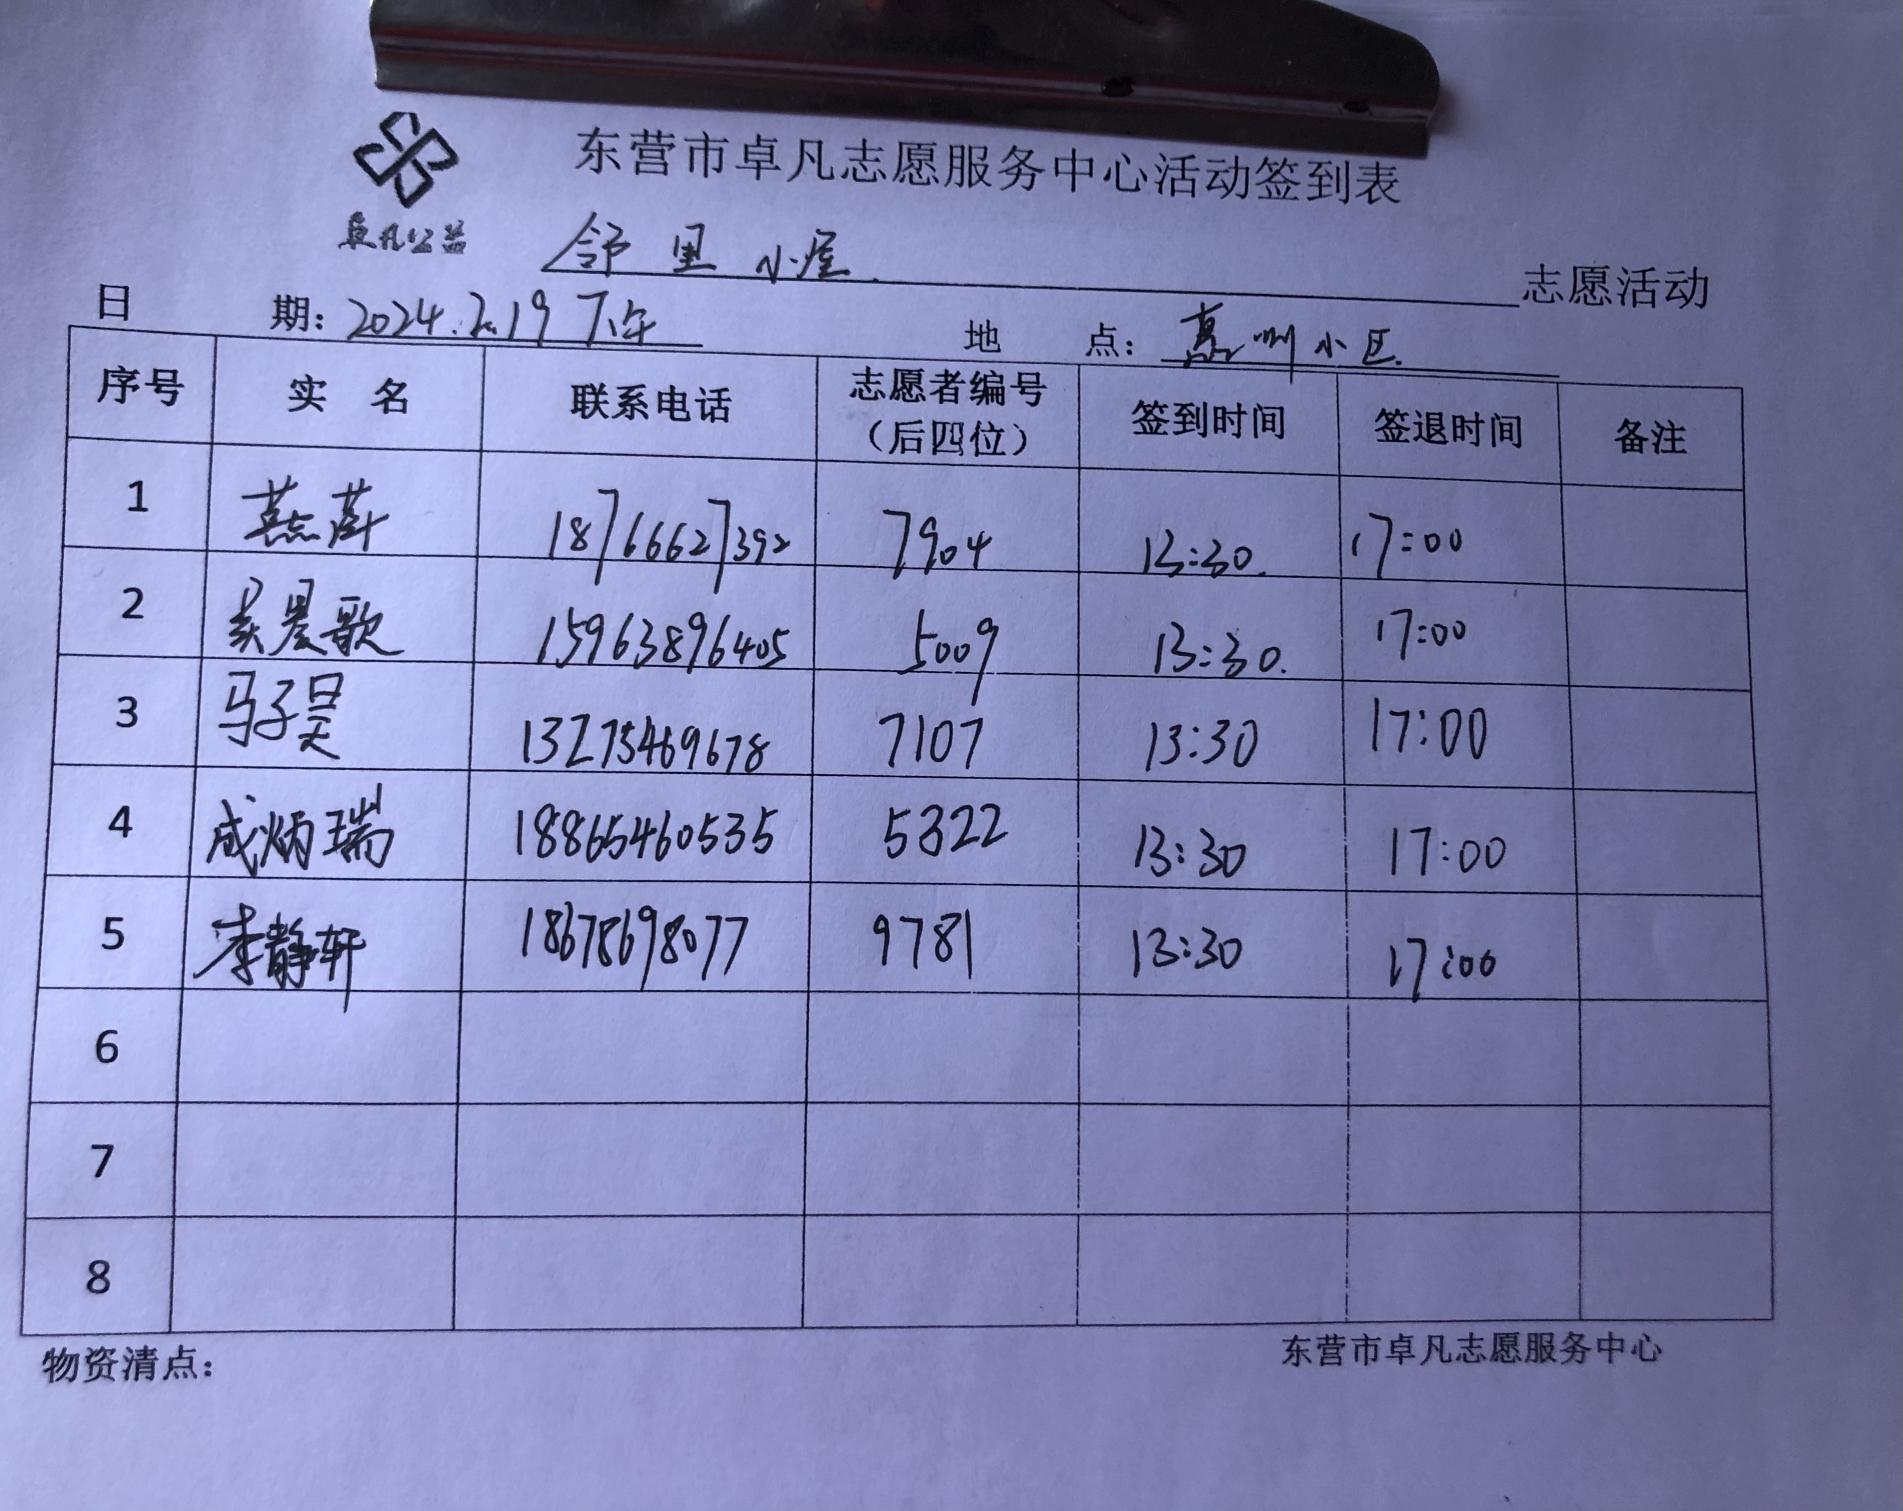 东营市卓凡志愿服务中心活动签到表
卓凡公益
邻里小屋 志愿活动
日期：2024.2.19 下午 地点：惠州小区
序号 实名 联系电话 志愿者编号（后四位） 签到时间 签退时间 备注
1 18766627392 7904 13:30. 17:00
2 晨歌 15963896405 5009 13:30. 17:00
3 马子昊 13275469678 7107 13:30 17:00
4 成炳瑞 18865460535 5322 13:30 17:00
5 李静轩 18678698077 9781 13:30 17:00
6
7
8
物资清点： 东营市卓凡志愿服务中心